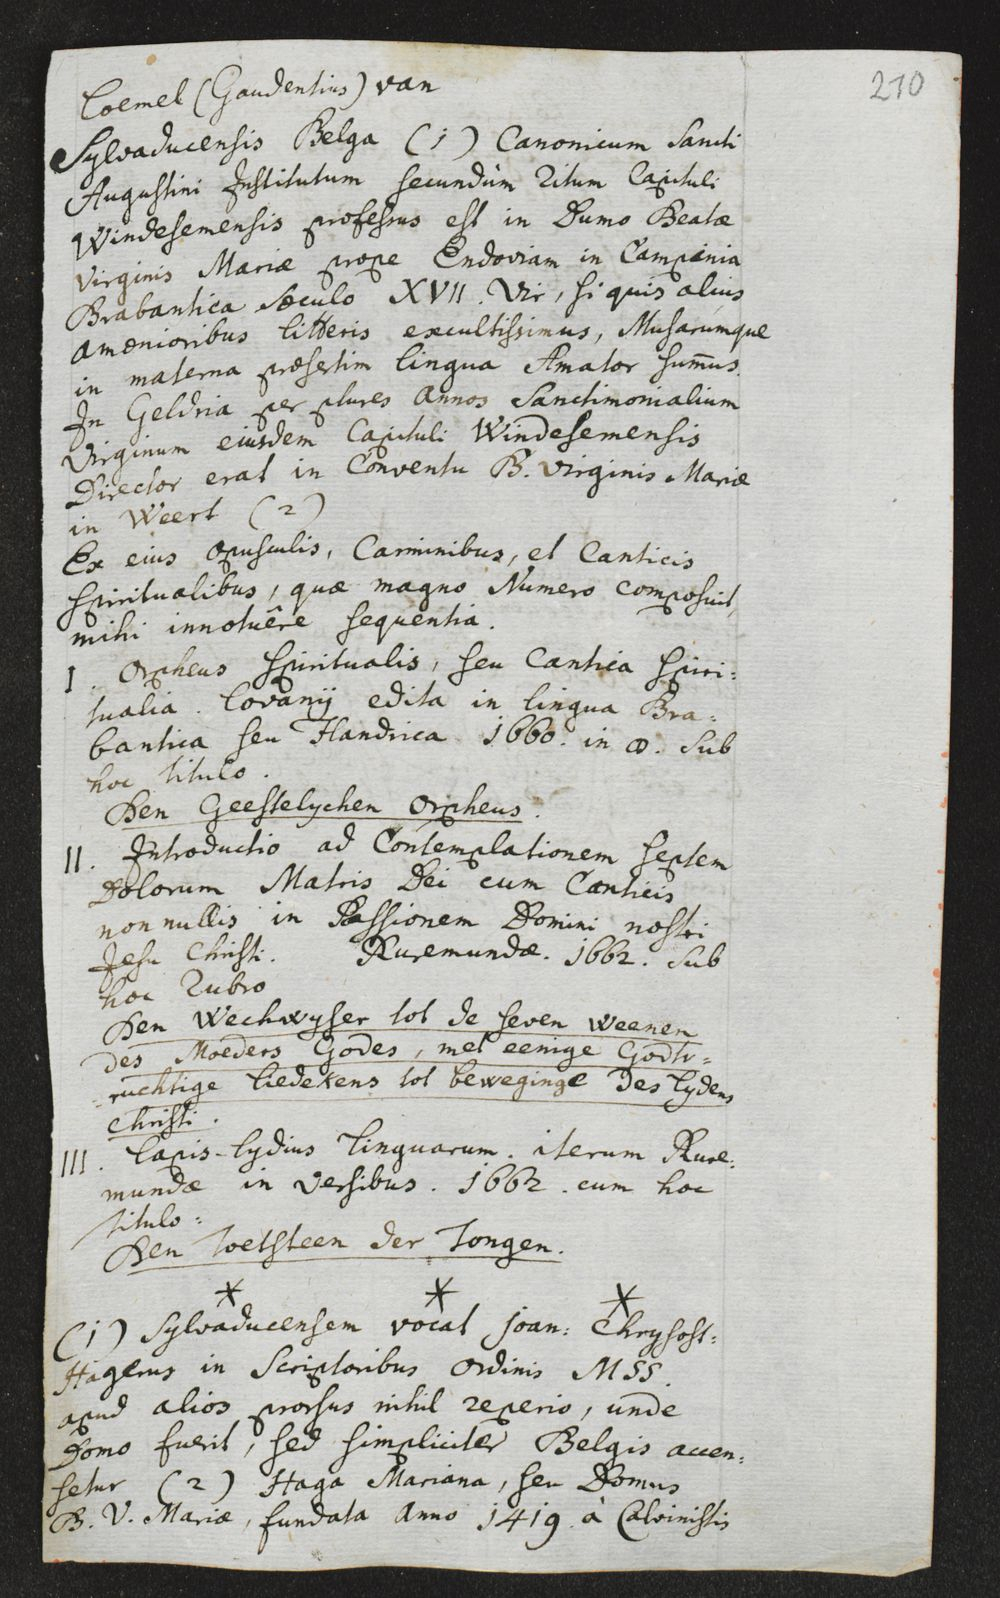 210
Coemel (Gaudentius) van
Sylvaducensis Belga (1) Canonicum Sancti
Augustini Institutum secundùm Ritum Capituli
Windesemensis professus est in Dumo Beatæ
Virginis Mariæ prope Endoviam in Campinia
Brabantica sæculo XVII. Vir, si quis alius
amænioribus litteris excultissimus, Musarumque
in materna præsertim lingua Amator sum̄us.
In Geldria per plures annos Sanctimonialium
Virginum eiusdem Capituli Windesemensis
Director erat in Conventu B. Virginis Mariæ
in Weert (2)
Ex eius opusculis, Carminibus, et Canticis
spiritualibus, quæ magno Numero composuit,
mihi innotuêre sequentia.
I. Orpheus spiritualis, seu Cantica spiri:
tualia. Lovanÿ edita in lingua Bra:
bantica seu Flandrica 1660. in 8. sub
hoc titulo.
Den Geestelychen Orpheus.
II. Introductio ad Contemplationem septem
Dolorum Matris Dei cum Canticis
non nullis in Passionem Domini nostri
Jesu Christi. Ruremundæ. 1662. sub
hoc Rubro
Den Wechwyser tot de seven weenen
des Moeders Godes, met eenige Godtv-
ruchtige liedekens tot beweginge des lydens
Christi.
III. Lapis-lydius linguarum. iterum Rure:
mundæ in versibus. 1662. cum hoc
titulo:
Den toetsteen der Tongen.
* * *
(1) Sylvaducensem vocat Joan: Chrysost:
Hagerus in Scriptoribus ordinis MSS.
apud alios prorsus nihil reperio, unde
Domo fuerit, sed simpliciter Belgis accen:
setur (2) Haga Mariana, seu Domus
B. V. Mariæ, fundata Anno 1419 à Calvinistis